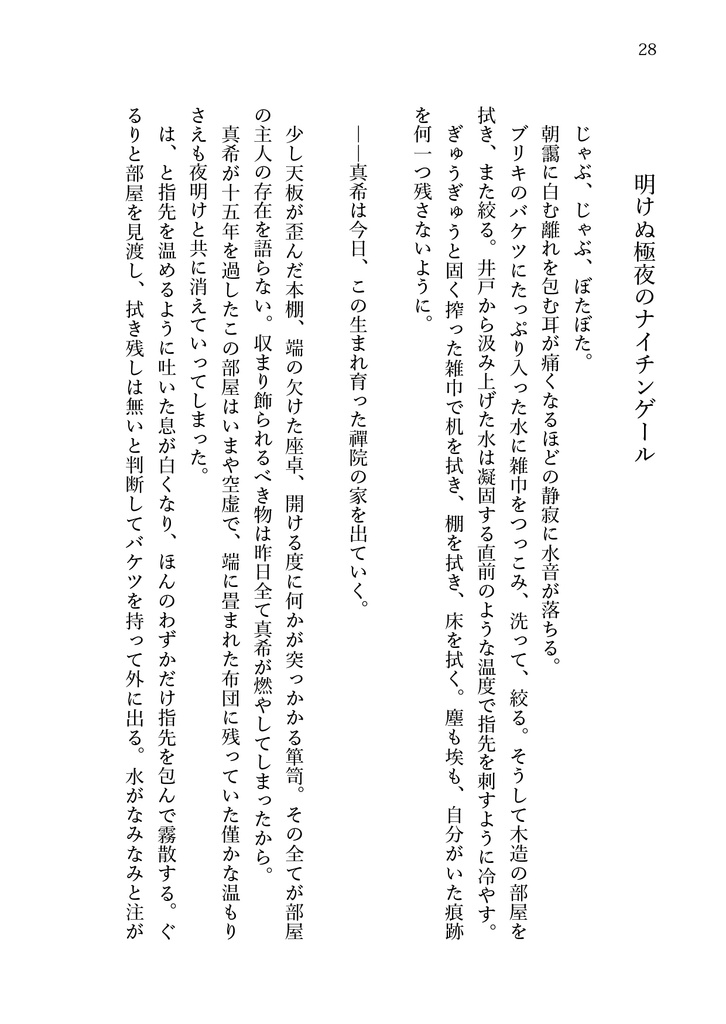 28
明けぬ極夜のナイチンゲール
じゃぶ、じゃぶ、ぼたぼた。
朝靄に白む離れを包む耳が痛くなるほどの静寂に水音が落ちる。
ブリキのバケツにたっぷり入った水に雑巾をつっこみ、洗って、絞る。そうして木造の部屋を
拭き、また絞る。井戸から汲み上げた水は凝固する直前のような温度で指先を刺すように冷やす。
ぎゅうぎゅうと固く搾った雑巾で机を拭き、棚を拭き、床を拭く。塵も埃も、自分がいた痕跡
を何一つ残さないように。
――真希は今日、この生まれ育った禪院の家を出ていく。
少し天板が歪んだ本棚、端の欠けた座卓、開ける度に何かが突っかかる箪笥。その全てが部屋
の主人の存在を語らない。収まり飾られるべき物は昨日全て真希が燃やしてしまったから。
真希が十五年を過したこの部屋はいまや空虚で、端に畳まれた布団に残っていた僅かな温もり
さえも夜明けと共に消えていってしまった。
は、と指先を温めるように吐いた息が白くなり、ほんのわずかだけ指先を包んで霧散する。ぐ
るりと部屋を見渡し、拭き残しは無いと判断してバケツを持って外に出る。水がなみなみと注が